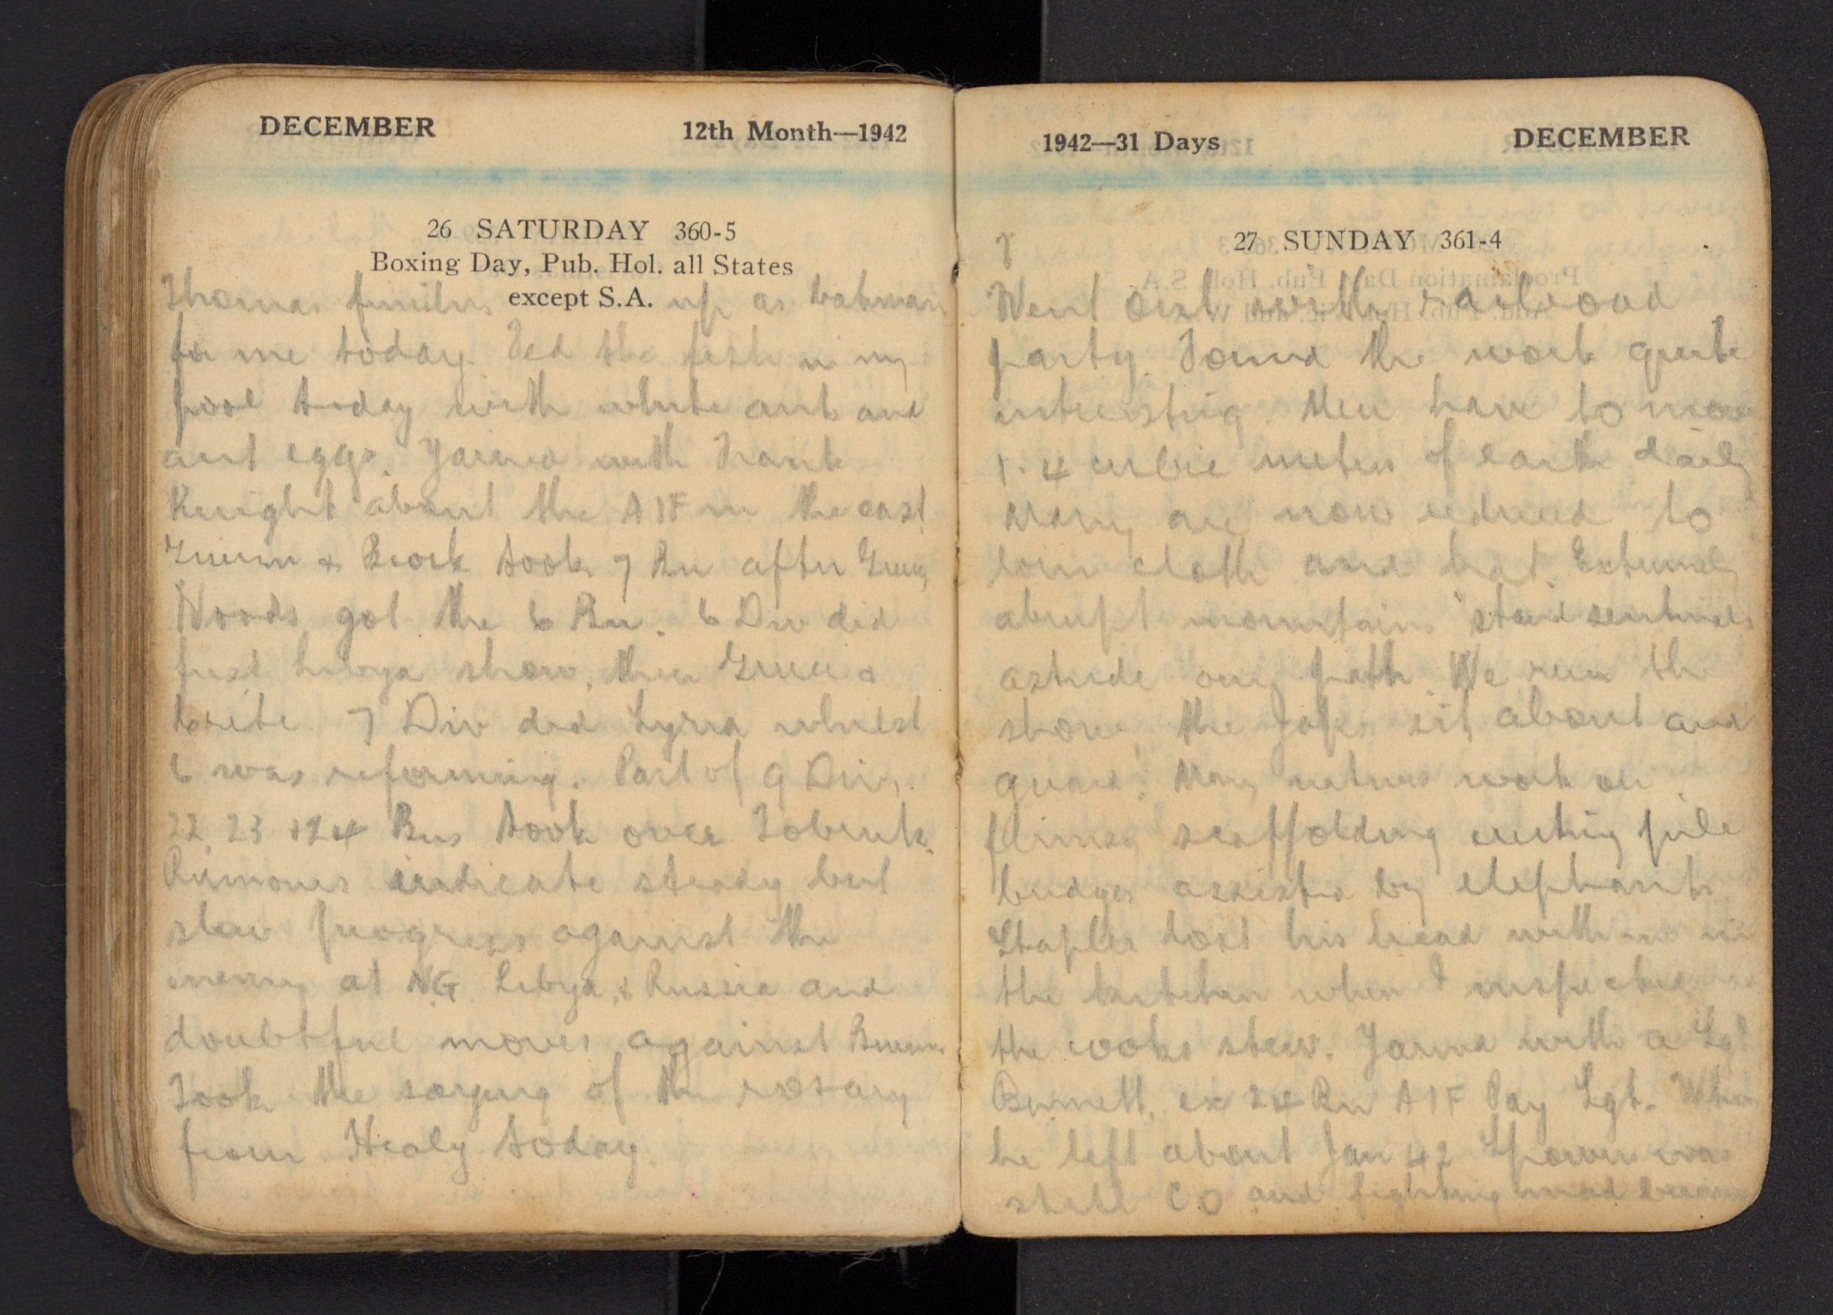 DECEMBER 12th Month—1942
26 SATURDAY 360-5
Boxing Day, Pub. Hol. all States
except S.A.
Thomas finishes up as batman
for me today. Fed the fish in my
pool today with white ants and
ant eggs. Yarned with Frank
Knight about the AIF in the east
& Brock took 7 Bn after
Woods got the 6 Bn. 6 Div did
first Libya show, then Greece &
Crete. 7 Div did Syria whilst
6 was reforming. Part of 9 Div,
22, 23 & 24 Bns took over Tobruk.
Rumours indicate steady but
slow progress against the
enemy at NG Libya, & Russia and
doubtful moves against Burma
Took the saying of the rosary
from Healy today.
1942—31 Days DECEMBER
27 SUNDAY 361-4
Went out with railroad
party. Found the work quite
interesting. Men have to move
1.4 cubic meters of earth daily
Many are now reduced to
loin cloth and hat. Extremely
abrupt mountains stand sentinels
astride our path We the
show, the Japs sit about and
guard. Many natives work on
flimsy scaffolding erecting pile
bridges assisted by elephants
Stapler lost his head with me in
the kitchen when I inspected
the cooks stew. Yarned with a Sgt
Burnett, ex 24 Bn AIF Pay Sgt. When
he left about Jan 42 was
still CO and fighting mad because